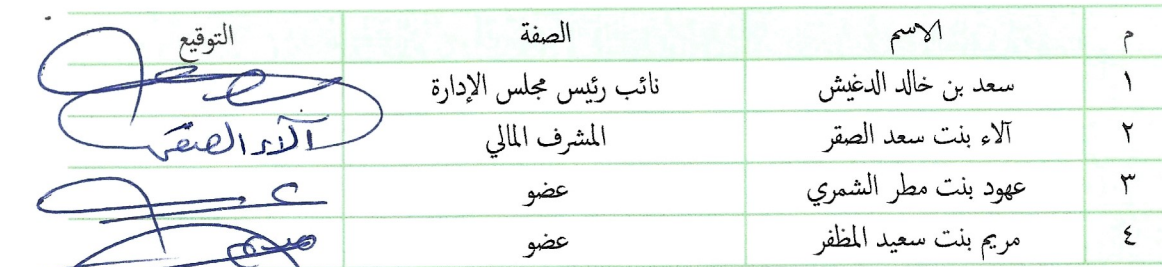 م الاسم الصفة التوقيع
١ سعد بن خالد الدغيش نائب رئيس مجلس الإدارة
٢ آلاء بنت سعد الصقر المشرف المالي آلاء الصقر
٣ عهود بنت مطر الشمري عضو
٤ مريم بنت سعيد المظفر عضو مريم